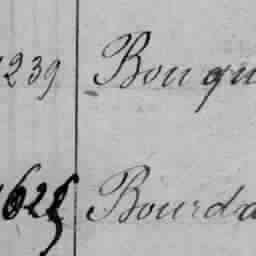 1239 Bouqu
1625 Bourda